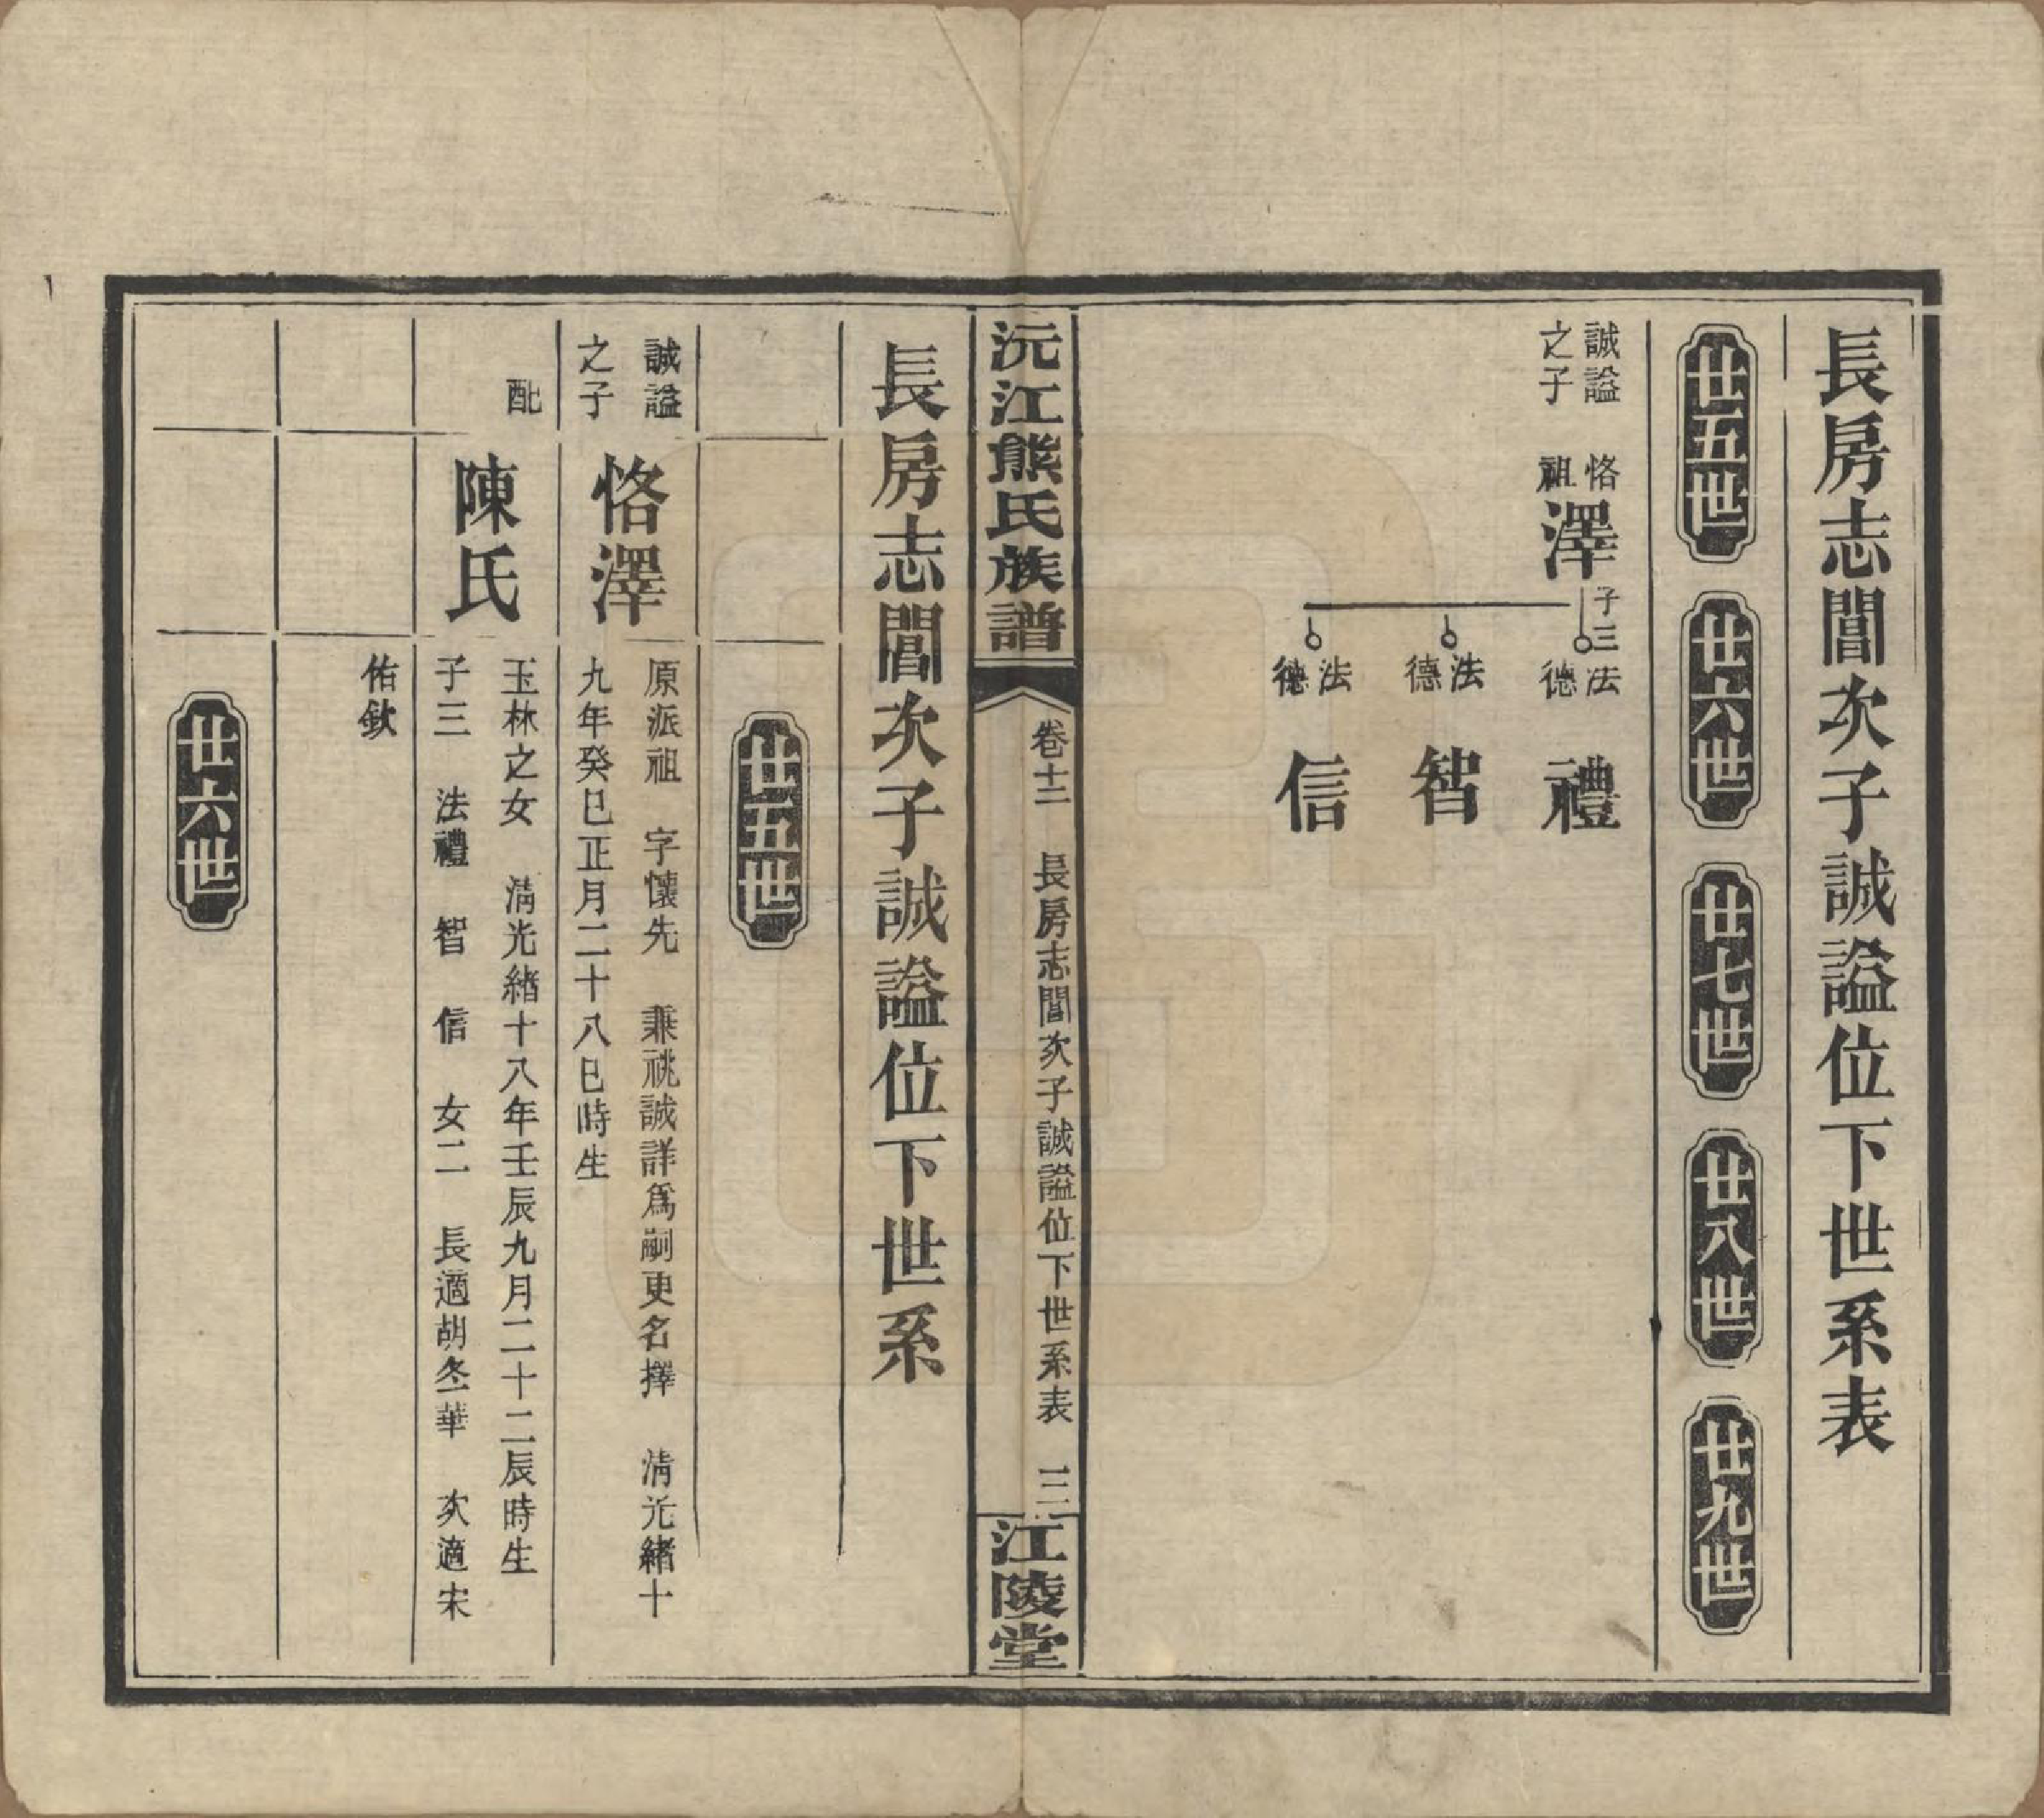 長房志誾次子誠謚位下世系表
廿五世
廿六世
廿七世
廿八世
廿九世
誠謚
之子
恪
祖
澤
子三
法
德
禮
法
德
智
法
德
信
沅江熊氏族譜
卷十二
長房志誾次子誠謚位下世系表
三
江陵堂
長房志誾次子誠謚位下世系
廿五世
誠謚
之子
恪澤
原派祖 字懷先 兼祧誠詳爲嗣更名擇 清光緒十
九年癸巳正月二十八巳時生
配
陳氏
玉林之女 清光緒十八年壬辰九月二十二辰時生
子三 法禮 智 信 女二 長適胡冬華 次適宋
佑欽
廿六世